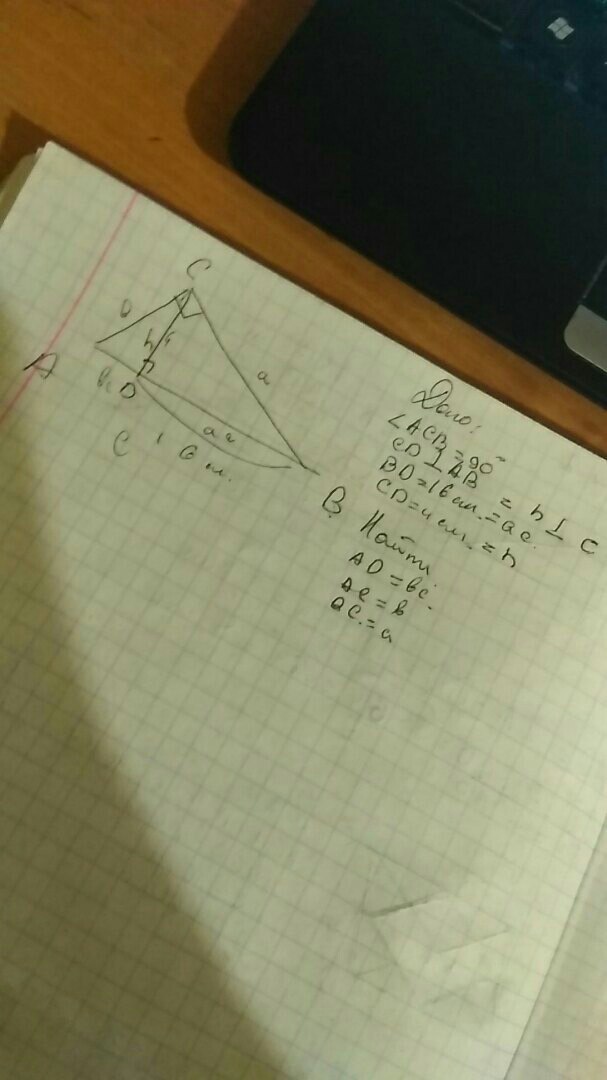 C
a
h
A
D
ac
C
16 см.
B
Дано:
∠ACB=90°
CD⊥AB = h⊥c
BD=16см.=ac.
CD=4см.=h
Найти
AD=bc.
AC=b
BC.=a